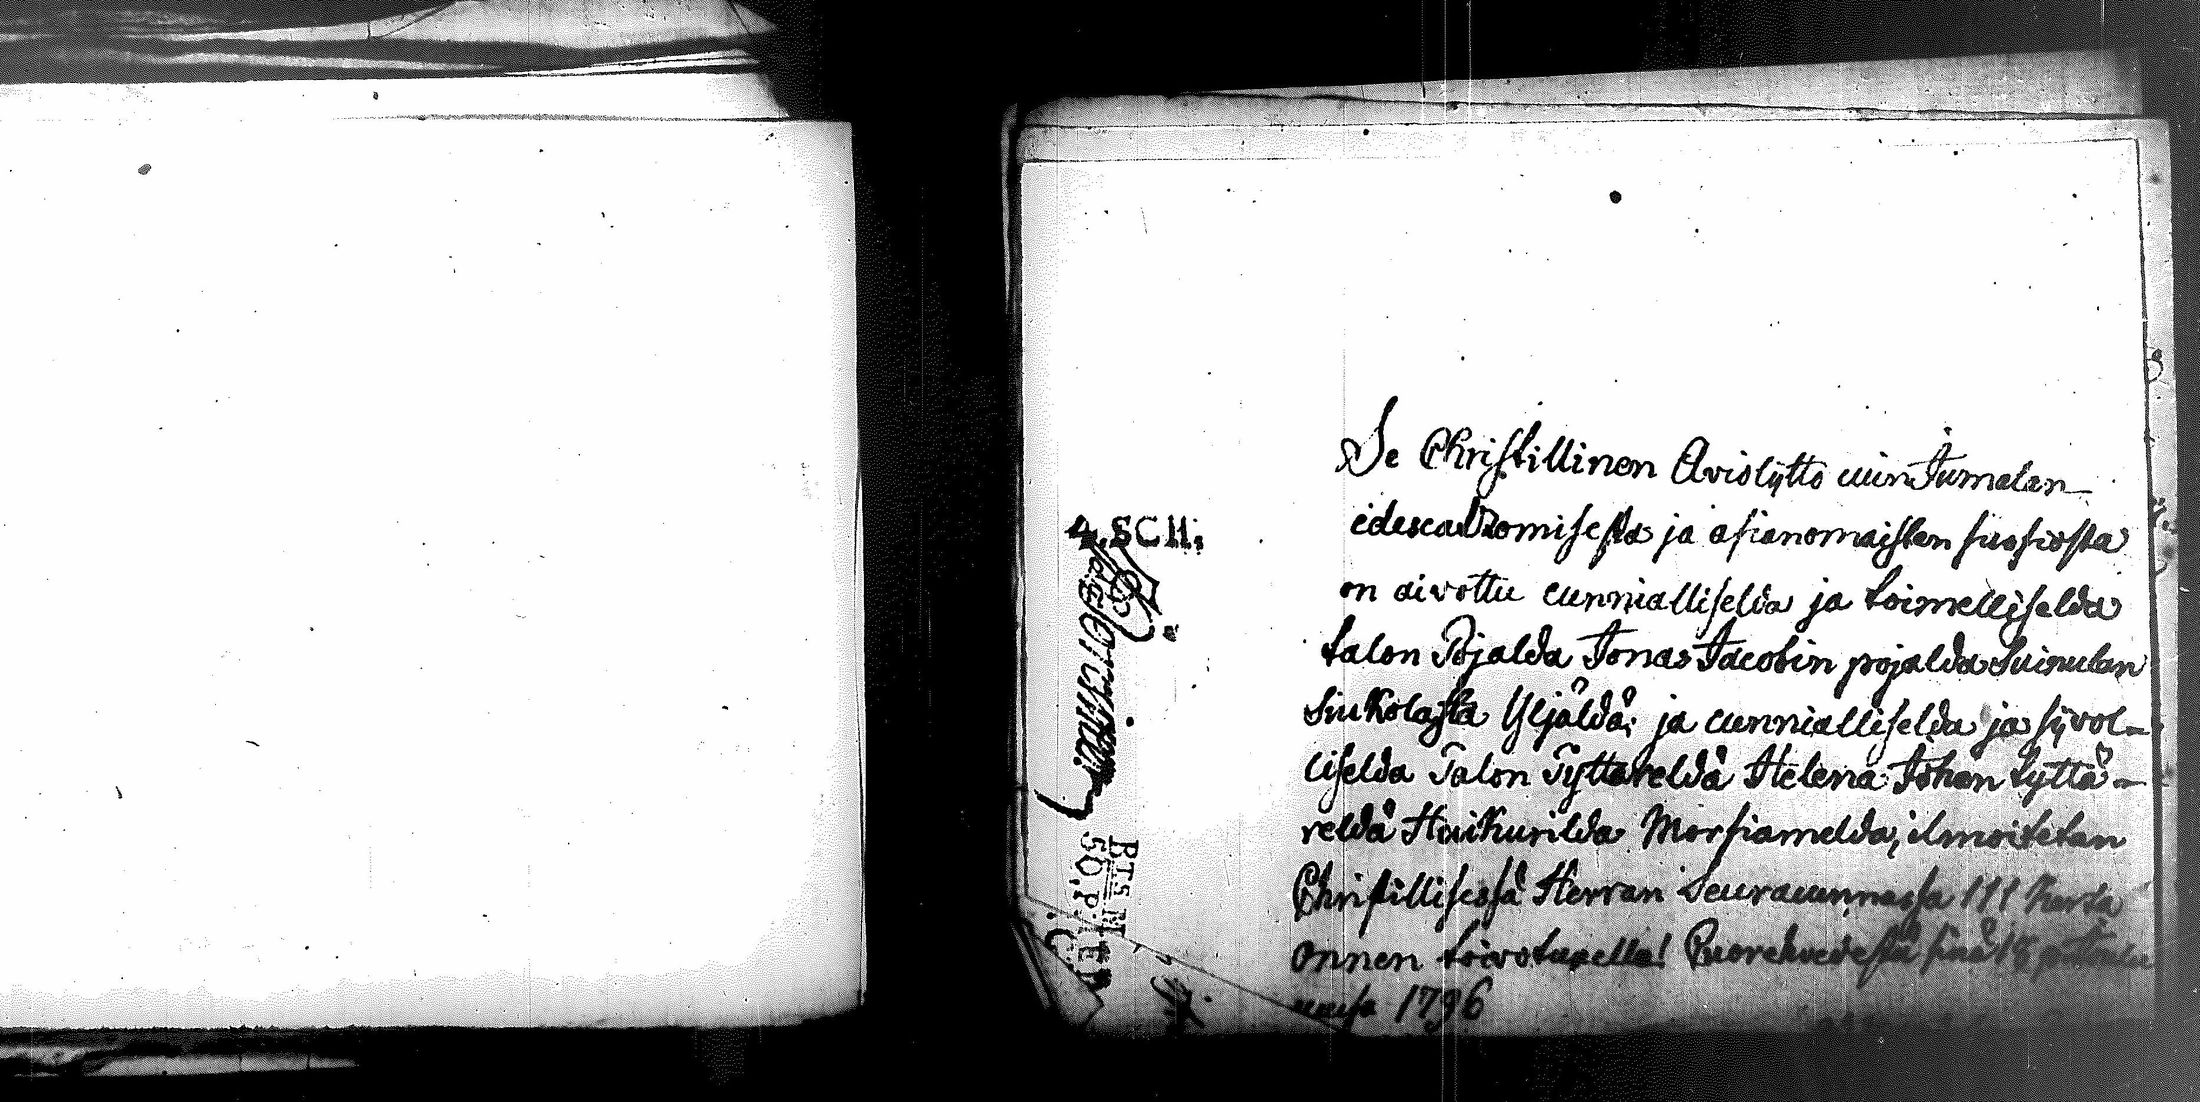 4. SCH.
BTS M
50. P.
Se Christillinen Aviolijtto cuin Jumalan
idescadzomisesta ja asianomaisten suosiosta
on aivottu cunnialliselda ja toimelliselda
talon Pojalda Jonas Jacobin pojalda Suinulan
Siukolasta Yljäldä; ja cunnialliselda ja sijvol-
liselda Talon Tyttäreldä Helena Johan tyttä-
reldä Huikurilda Morsiamelda, ilmoitetan
Christillisessä Herran Seuracunnassa III kerta
onnen toivotuxella! Ruovehdestä sinä 18 p
1796